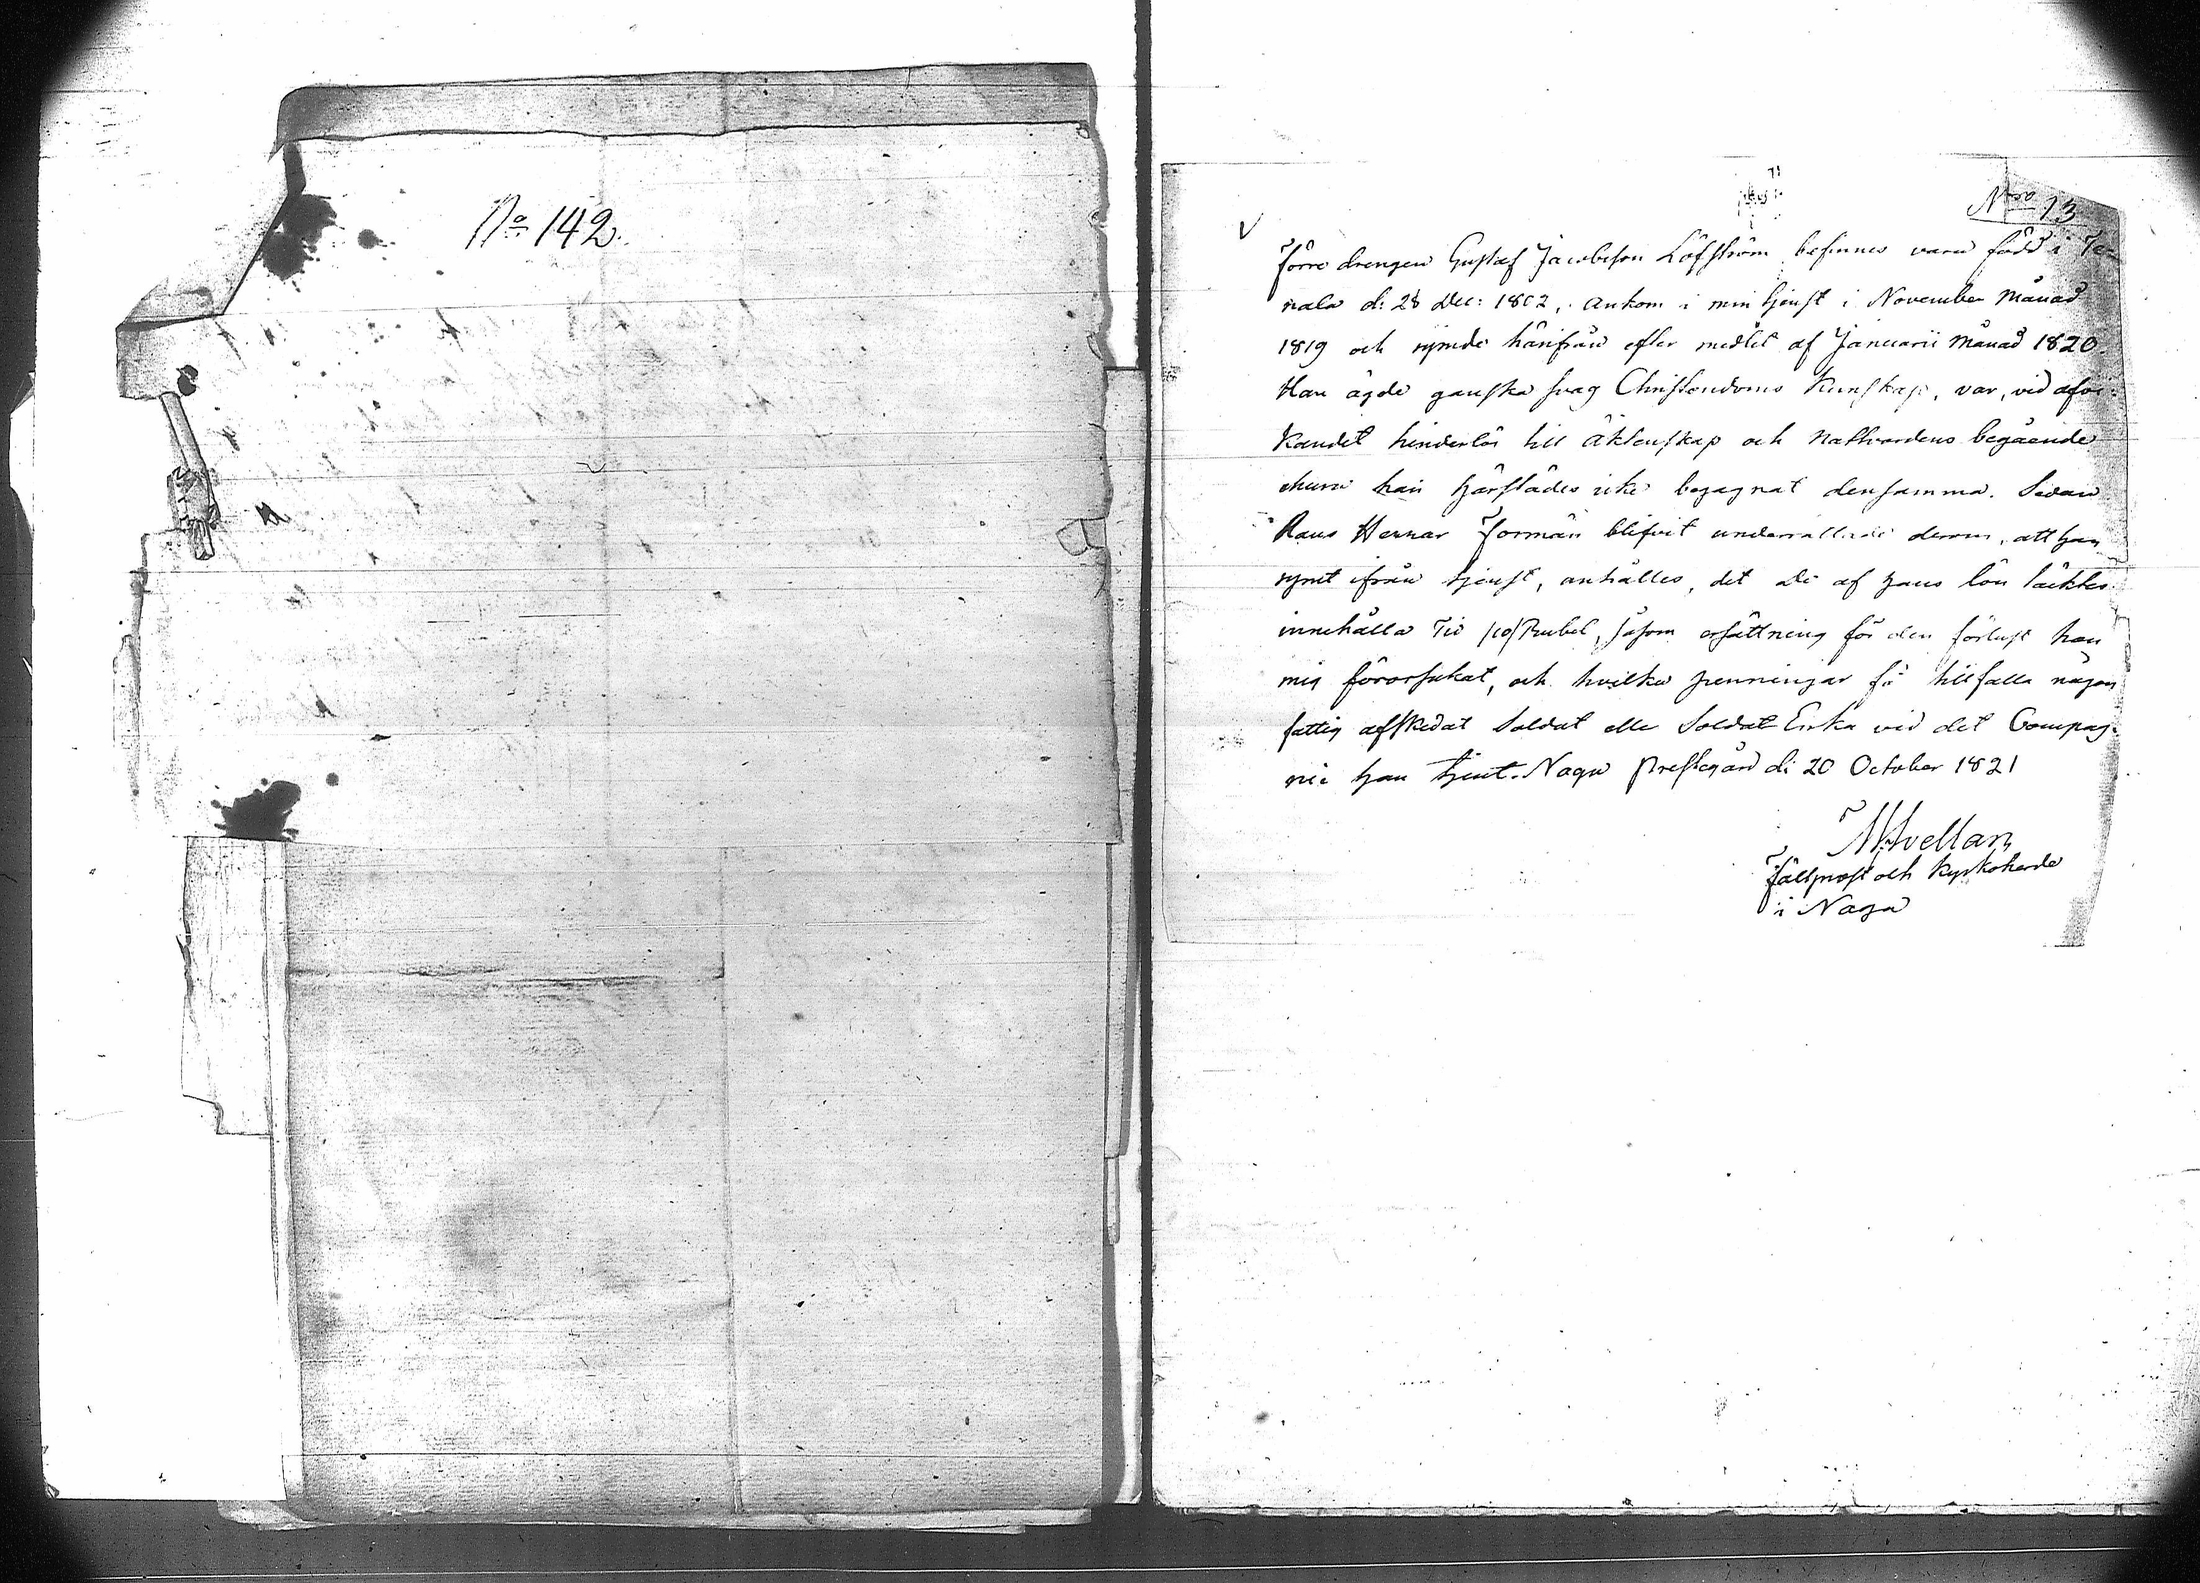 No 142.
Nro 13
Förre drengen Gustaf Jacobsson Löfström befinnes vara född i Te-
nala d: 28 Dec: 1802, ankom i min tjenst i November Månad
1819 och rymde härifrån efter medlet af Januarii Månad 1820.
Han ägde ganska svag Christendoms Kunskap, var, vid afvi-
kandet hinderlös till Äktenskap och Nattvardens begående
ehuru han härstädes icke begagnat densamma. Sedan
Hans Herrar Förmän blifvit underrattade derom, att han
rymt ifrån tjenst, anhålles, det De af hans lön täcktes
innehålla Tio /10/ Rubel, såsom ersättning för den förlust han
mig förorsakat, och hvilka penningar få tillfalla någon
fattig afskedat Soldat elle Soldat Enka vid det Compag-
nie han tjent. Nagu Prestegård d: 20 October 1821
Fältprost och Kyrkoherde
i Nagu